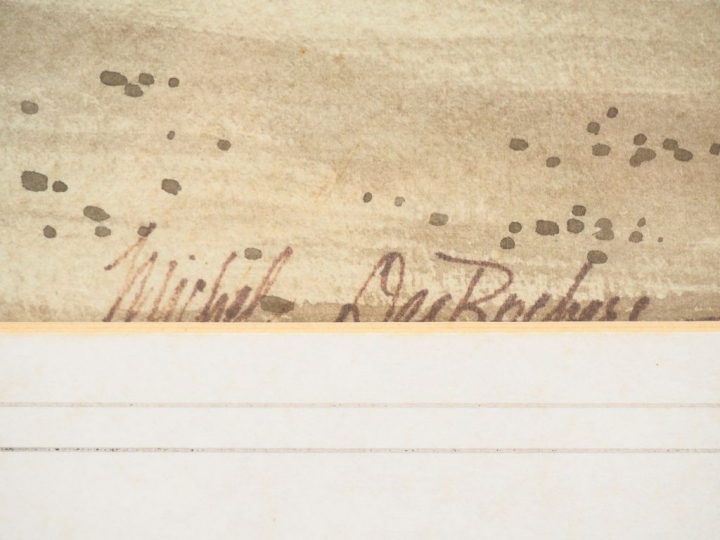 Michel DesRochers